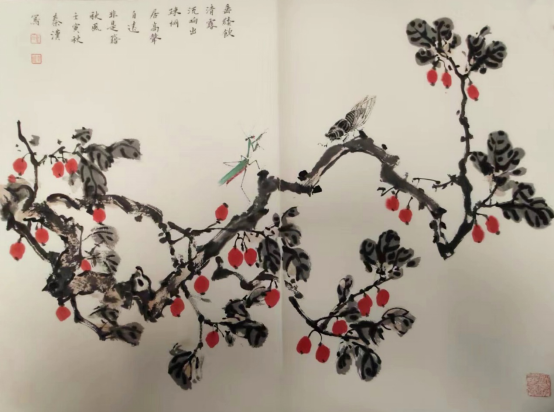 垂緌飲
清露
流響出
疎桐
居高聲
自遠
非是藉
秋風
壬寅秋
秦漢
寫